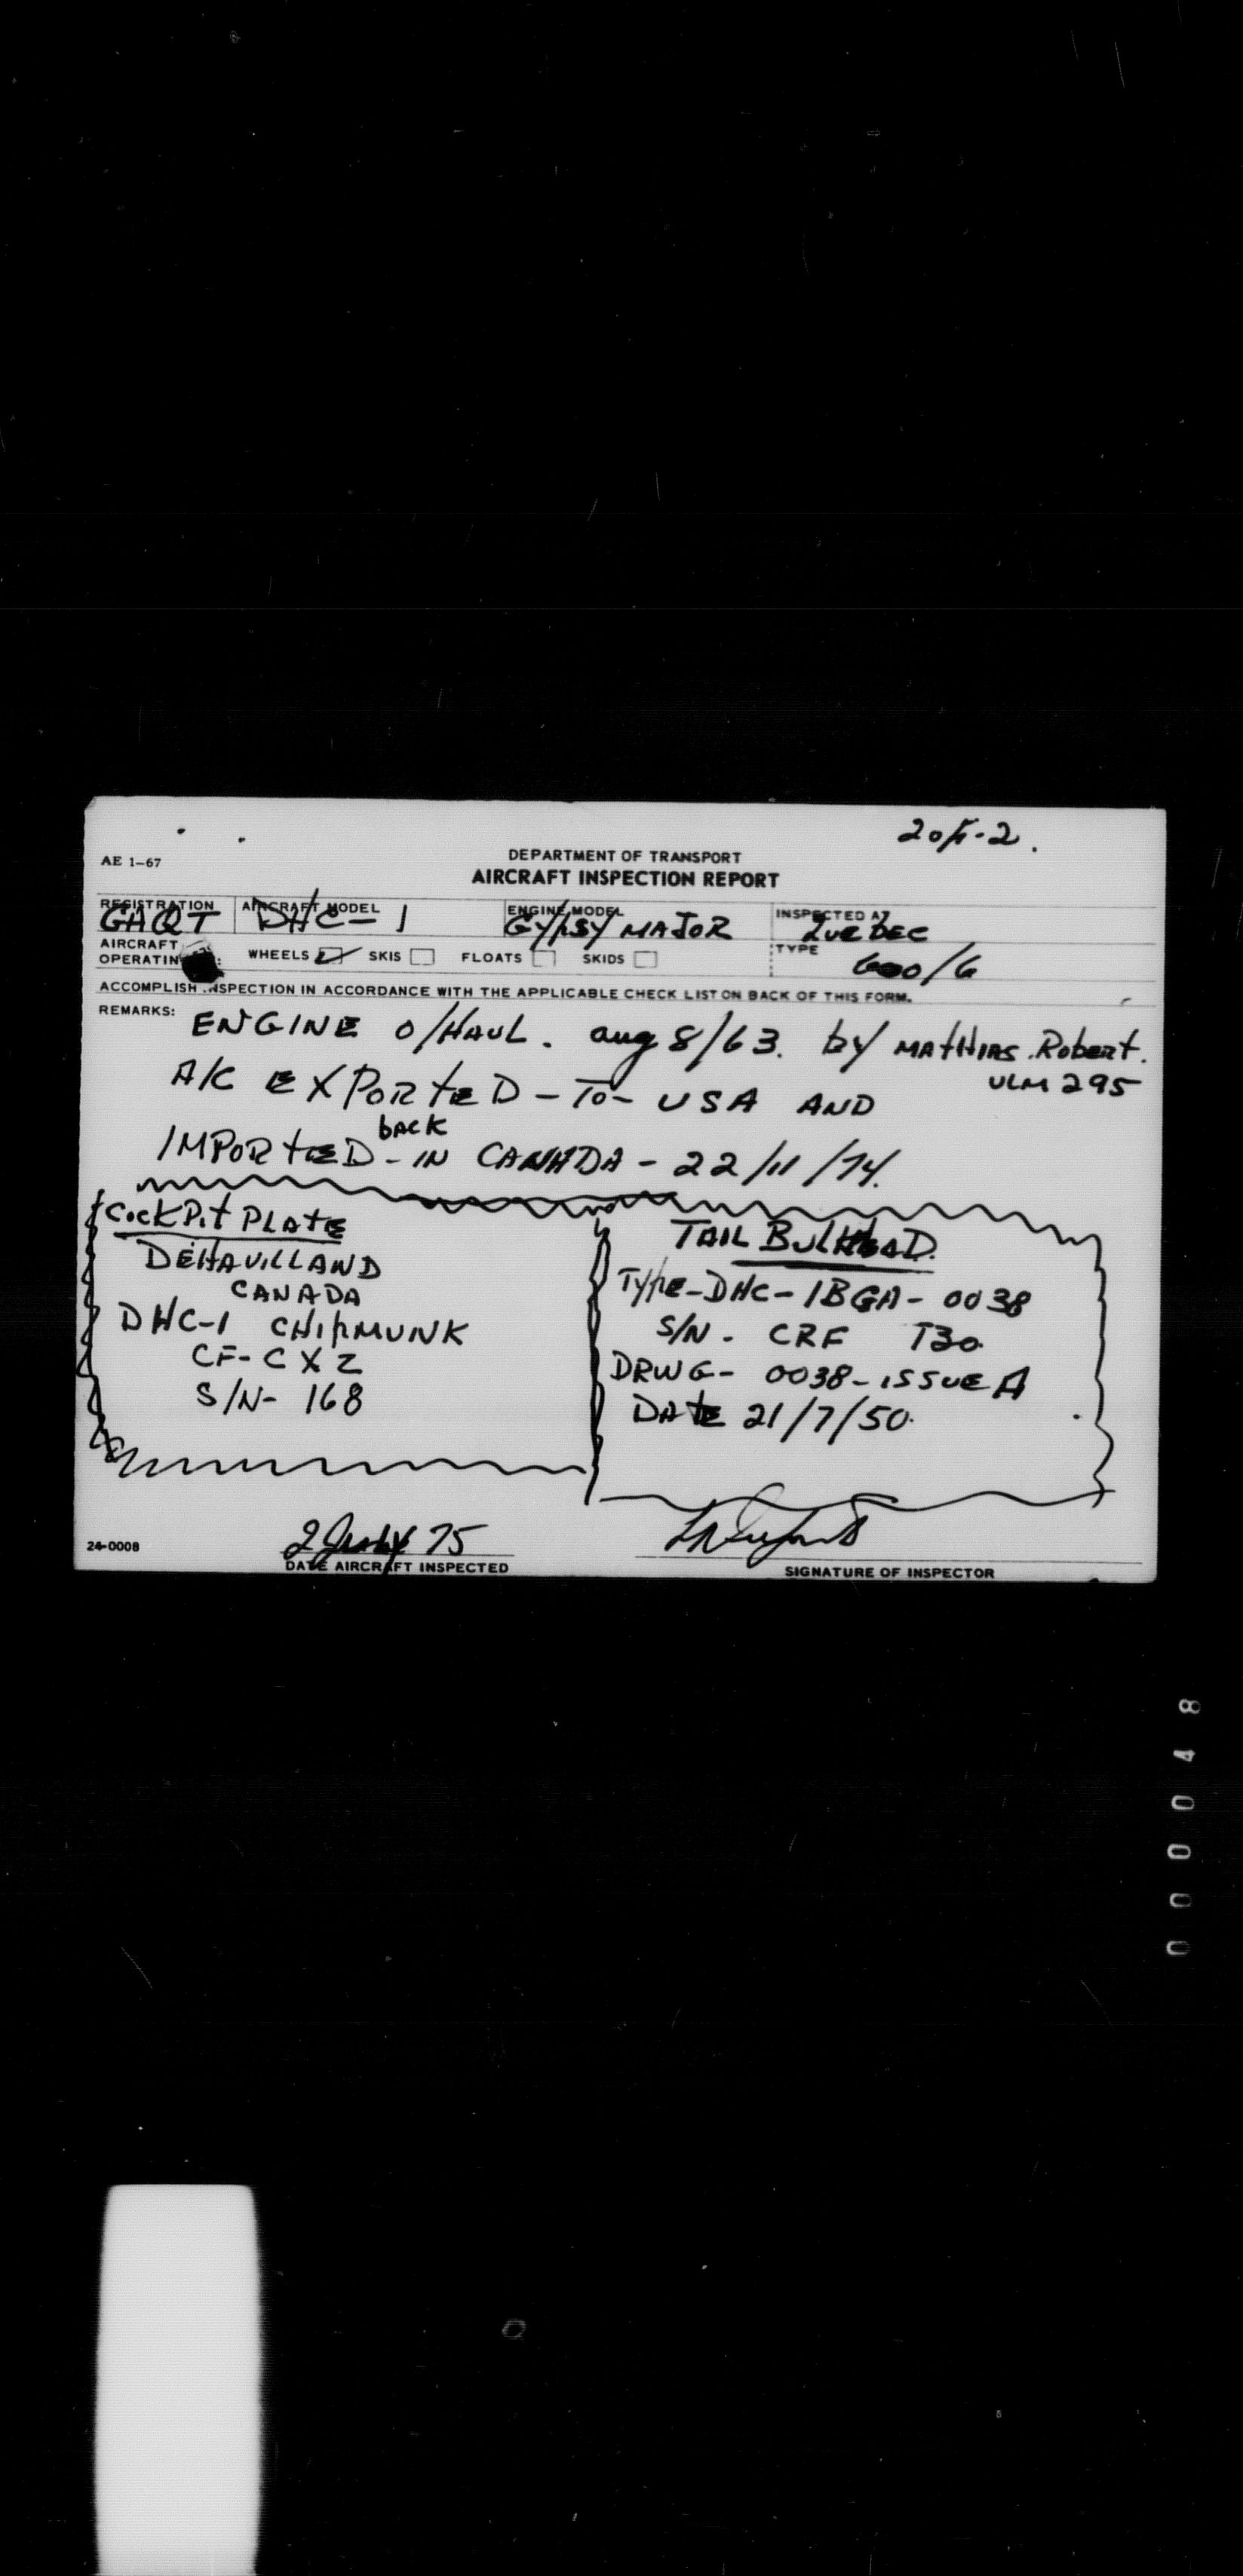 AE 1-67
DEPARTMENT OF TRANSPORT
AIRCRAFT INSPECTION REPORT
REGISTRATION AIRCRAFT MODEL ENGINE MODEL INSPECTED AT
GAQT DHC-1 GYPSY MAJOR
AIRCRAFT OPERATIN WHEELS SKIS FLOATS SKIDS TYPE
ACCOMPLISH INSPECTION IN ACCORDANCE WITH THE APPLICABLE CHECK LIST ON BACK OF THIS FORM.
REMARKS: ENGINE O/HAUL. aug 8/63. by MATHIAS Robert.
ULM 295
A/C EXPORTED - TO - USA AND
IMPORTED - back IN CANADA - 22/11/74.
COCKPIT PLATE
DEHAVILLAND
CANADA
DHC-1 CHIPMUNK
CF-CXZ
S/N- 168
TAIL BULKHEAD.
TYPE-DHC-1BGA-0038
S/N. CRF T30
DRWG- 0038-ISSUE A
DATE 21/7/50.
24-0008
2 July 75
DATE AIRCRAFT INSPECTED
SIGNATURE OF INSPECTOR
000048